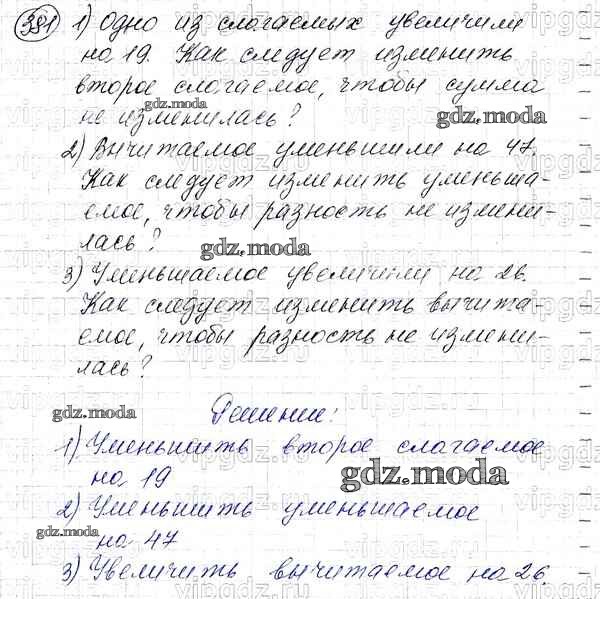 381 1) Одно из слагаемых увеличили
на 19. Как следует изменить
второе слагаемое, чтобы сумма
gdz.moda
не изменилась? gdz.moda
2) Вычитаемое уменьшили на 47.
Как следует изменить уменьша-
емое, чтобы разность не измени-
лась? gdz.moda
3) Уменьшаемое увеличили на 26.
Как следует изменить вычита-
емое, чтобы разность не измени-
лась?
gdz.moda Решение:
1) Уменьшить второе слагаемое
на 19 gdz.moda
2) Уменьшить уменьшаемое
gdz.moda на 47
3) Увеличить вычитаемое на 26.